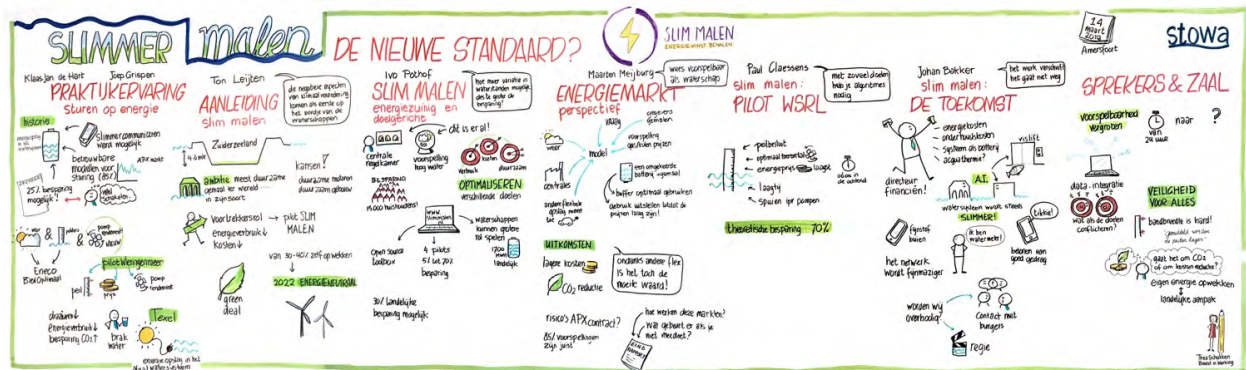 SLIMMER malen
DE NIEUWE STANDAARD?
SLIM MALEN
ENERGIEWINST BEHALEN
14
maart
2019
Amersfoort
stowa
Klaasjan de Hart
Joep Grispen
PRAKTIJKERVARING
Sturen op energie
historie
Slimmer communiceren
werd mogelijk
betrouwbare
modellen voor
sturing
APX markt
25% besparing
mogelijk?
Eneco
BiexOptimaal
pilot Wieringermeer
peil
prijs
pomp
rendement
draaiuren↓
energieverbruik↓
besparing CO2↑
brak
water
Texel
energie opslag in het
Ton Leijten
AANLEIDING
slim malen
de negatieve aspecten
van klimaatverandering
komen als eerste op
het bordje van de
waterschappen
Zuiderzeeland
4-6 mtr
ambitie meest duurzame
gemaal ter wereld....
in zijn soort
kansen!
duurzame motoren
duurzaam gebouw
Voortrekkersrol
energieverbruik↓
kosten↓
pilot SLIM
MALEN
van 30-40% zelf opwekken
2022 ENERGIENEUTRAAL
green
deal
Ivo Pothof
SLIM MALEN
energiezuinig en
doelgericht
hoe meer variatie in
waterstanden mogelijk
des te groter de
besparing!
dit is er al!
centrale
regelkamer
voorspelling
hoog water
kosten
verbruik
duurzaam
BESPARING
15.000 huishoudens!
OPTIMALISEREN
verschillende doelen
Open source
toolbox
4 pilots
5% tot 70%
besparing
waterschappen
kunnen grotere
rol spelen
landelijk
30% landelijke
besparing mogelijk
Maarten Meijburg
ENERGIEMARKT
perspectief
wees voorspelbaar
als waterschap
vraag
weer
gegevens
centrales
model
voorspelling
van de prijzen
een omgekeerde
batterij-gemaal
buffer optimaal gebruiken
prijzen laag zijn!
andere flexibele
opslag neemt
toe
UITKOMSTEN
lagere kosten
CO2 reductie
ondanks andere flex
is het toch de
moeite waard!
risico's APX contract?
85% voorspellingen
zijn juist
hoe werken deze markten?
wat gebeurt er als je
niet meedoet?
EIND
RAPPORT
Paul Claessens
slim malen:
PILOT WSRL
met zoveel doelen
heb je algoritmes
nodig
peilbeluit
optimaal toerental
energieprijs
laagste
laagtij
spuien ipv pompen
theoretische besparing 70%
Johan Bakker
slim malen:
DE TOEKOMST
het merk verschuift
het gaat niet weg
energiekosten
onderhoudskosten
systeem als batterij
aquathermie?
vislift
directeur
financiën!
A.I.
watersysteem wordt steeds
SLIMMER!
fijnstof
buien
ik ben
watermeter!
tikkie!
het netwerk
wordt fijnmaziger
belonen van
goed gedrag
worden wij
overbodig?
regie
Contact met
burgers
SPREKERS & ZAAL
voorspelbaarheid
vergroten
van
24 uur
naar ?
data-integratie
wat als de doelen
conflicteren?
VEILIGHEID
VOOR ALLES
bandbreedte is hard!
gaat het om CO2
of om kostenreductie?
eigen energie opwekken
landelijke aanpak